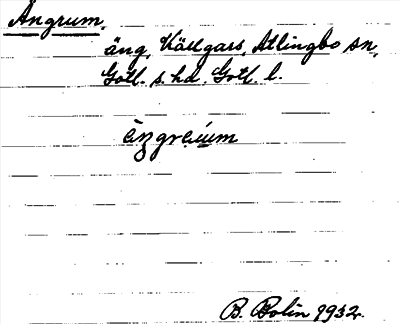 Ängrum,
äng, Källgars, Atlingbo sn,
Gotl. s. hd. Gotl. l.
B. Bolin 1932.